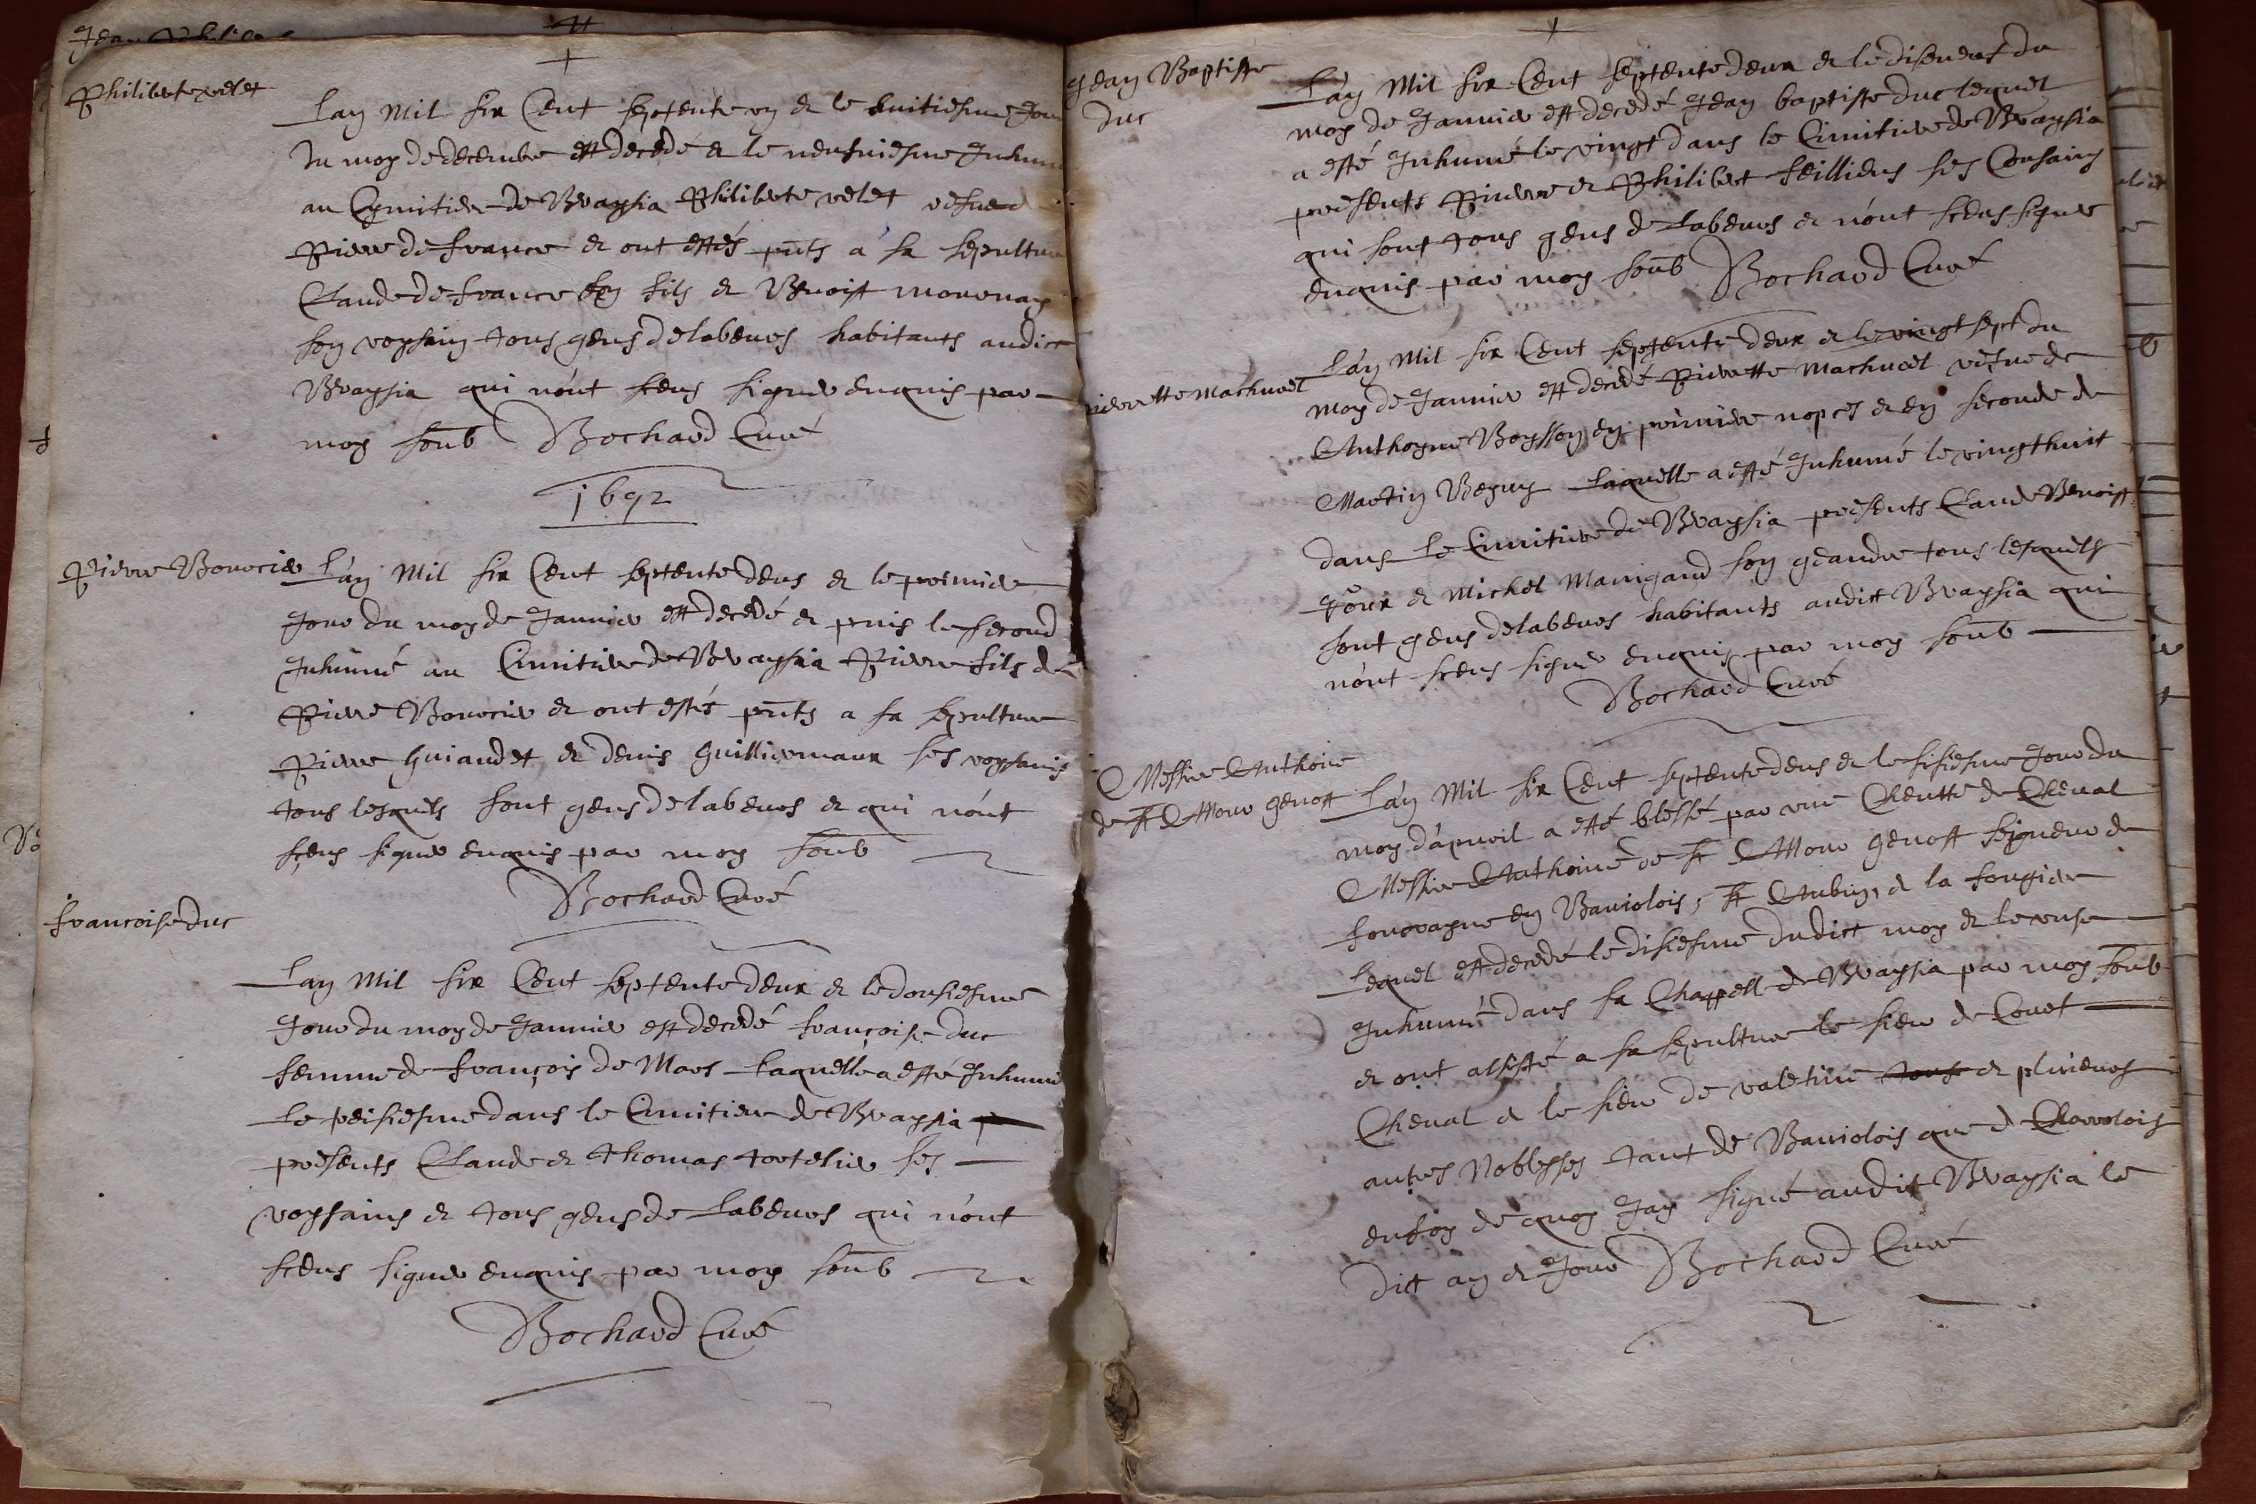 Philiberte velet
Lan Mil six Cent septente un et le huitiesme Jour
du moy de decembre est decedé et le neufuiesme Inhumé
au Cymitier de Bragsia Philiberte velet vefue d
Pierre de france et ont estés pnts a sa sepulture
Claude de france son fils et Benoist morenas
son voysain tous gens de labeurs habitants audict
Bragsia qui n'ont sceus signer enquis par
moy soub Bochard Curé
1672
Pierre Borrecier
L'an Mil six Cent septente deus et le premier
Jour du moy de Januier est decedé et puis le second
Inhumé au Cimitiere de Bragsia Pierre fils de
Pierre Borrecier et ont estés pnts a sa sepulture
Pierre guiaudet et denis guilliermaux ses voysains
tous lesquels sont gens de labeurs et qui n'ont
sçeus signer enquis par moy soub
Bochard Curé
francoise duc
Lan Mil six Cent septente deux et le dousiesme
Jour du moy de Januier est decedé françoise duc
femme de françois de Mars laquelle a esté Inhumé
le treisiesme dans le Cimitiere de Bragsia
presents Claude et thomas tortelier ses
voysains et tous gens de labeurs qui n'ont
sceus signer enquis par moy soub
Bochard Curé
Jean Baptiste
duc
L'an Mil six Cent septente deux et le diseneuf du
moy de Januier est decedé Jean baptiste duc lequel
a esté Inhumé le vingt dans le Cimitiere de Bragsia
presents Pierre et Philibert feilliens ses Cousains
qui sont tous gens de labeurs et n'ont sceus signer
enquis par moy soub Bochard Curé
pierrette Machurel
L'an Mil six Cent septente deux et le vingt sept du
moy de Januier est decedé Pierrette Machurel vefue de
Anthoyne Boysson en premiere nopces et en seconde de
Martin Beguy laquelle a esté Inhumé le vingt huit
dans le Cimitiere de Bragsia presents Claude Benoist
Joux et Michel Manigand son geandre tous lesquels
sont gens de labeurs habitants audict Bragsia qui
n'ont sceus signer enquis par moy soub
Bochard Curé
Messire Anthoine
de St Amour genost
L'an Mil six Cent septente deus et le sisiesme Jour du
moy d'apvril a esté blessé par une Cheutte de Cheval
Messire Anthoine de St Amour genost seigneur de
fourragne en Bauiolois, St Aubin, et la fougiere
Lequel est decedé le disiesme dudict moy et le onse
Inhumé dans sa Chappell de Bragsia par moy soub
et ont assisté a sa sepulture le sieur de Couet
Cheual et le sieur de valetine et plusieurs
autres Noblesses tant de Bauiolois que d Charrolois
en foy de quoy Jay signé audit Bragsia le
dict an et Jour Bochard Curé